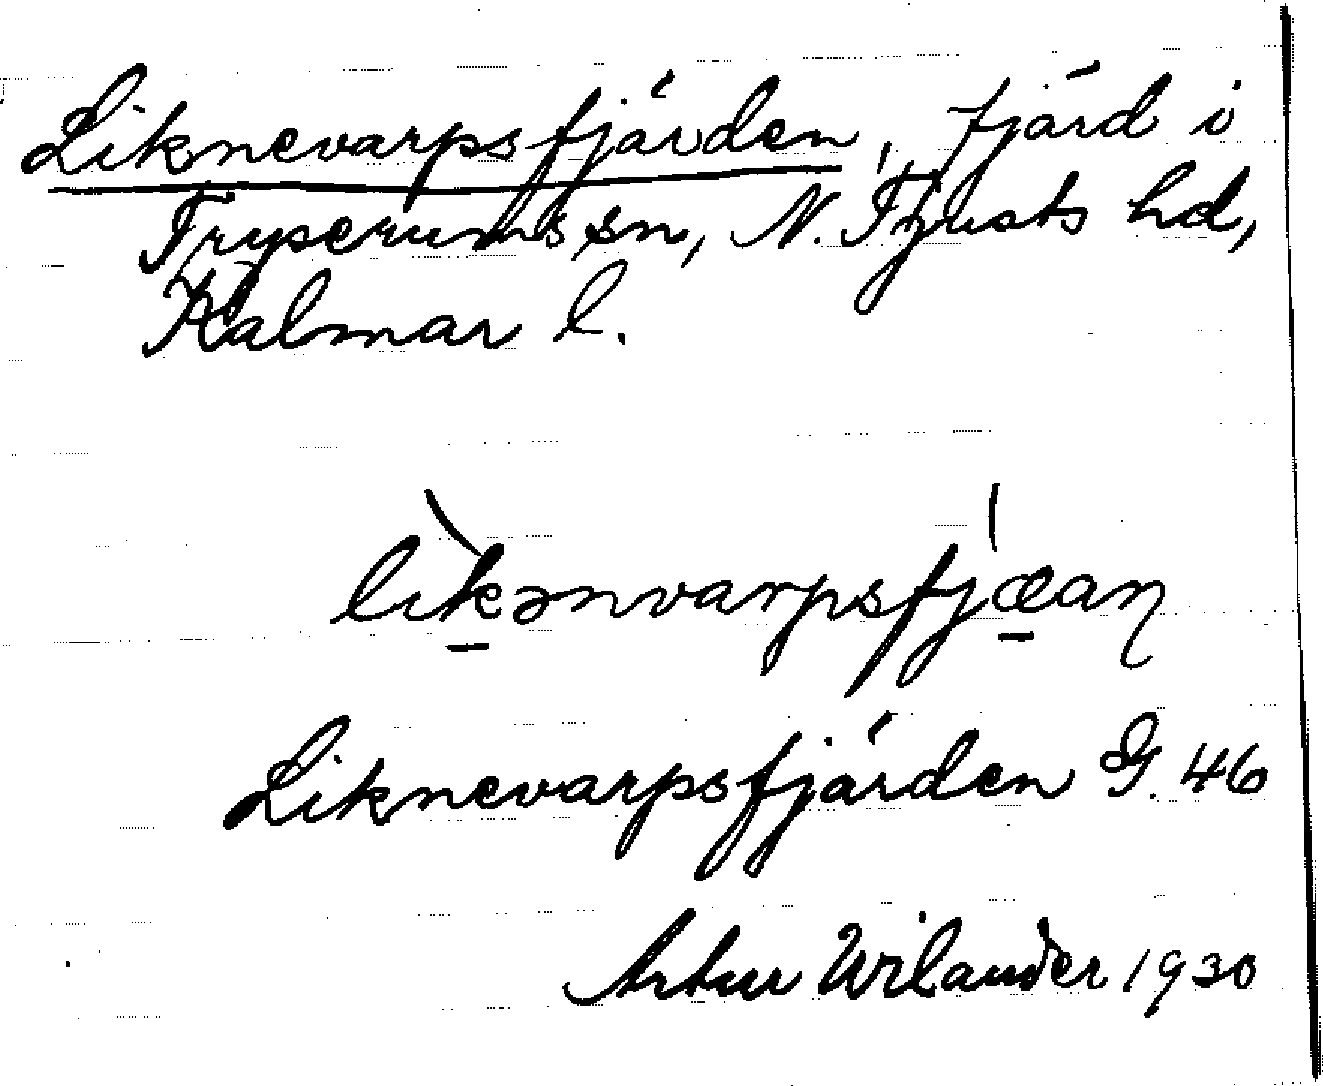 Liknevarpsfjärden, fjärd i
Tryserums sn, N. Tjusts hd,
Kalmar l.
lìkənvarpsfjæ̍aɳ
Liknevarpsfjärden G. 46
Artur Wilander 1930